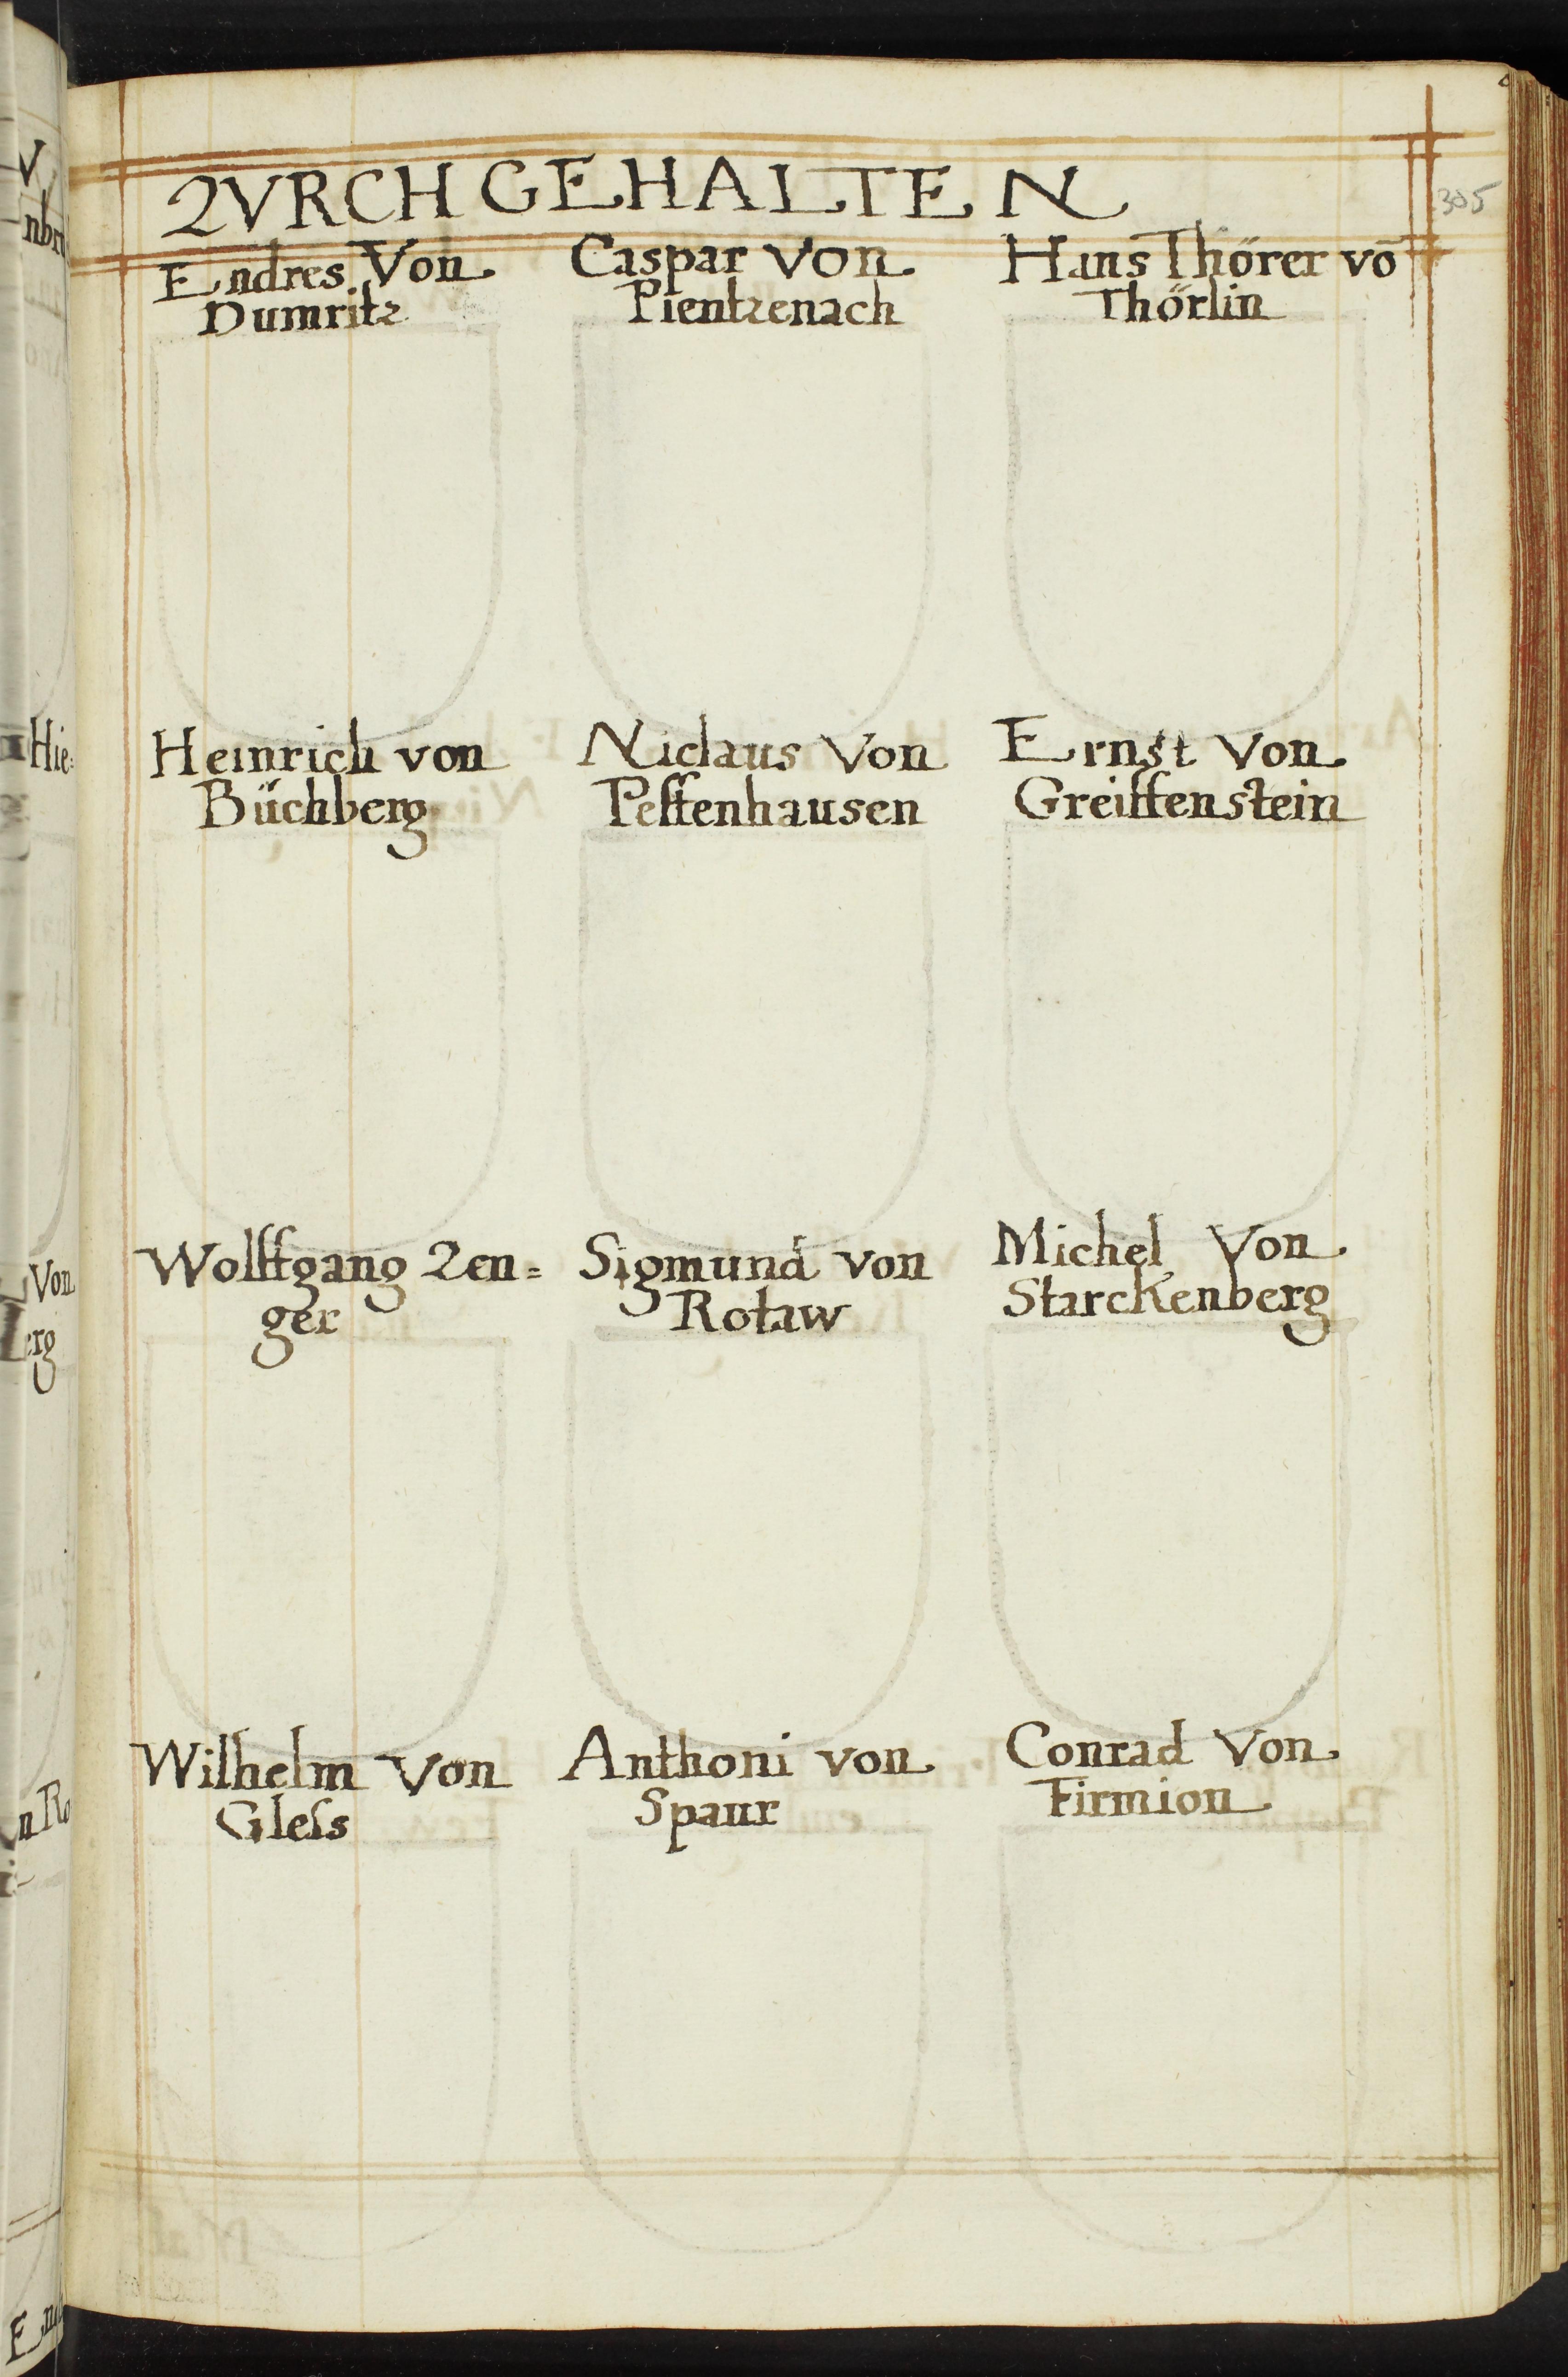 ZVRCH GEHALTEN
305
Endres Von
Dumritz
Caspar von
Pientzenach
Hans Thörer vō
Thörlin
Heinrich von
Büchberg
Niclaus Von
Peffenhausen
Ernst Von
Greiffenstein
Wolffgang Zen=
ger
Sigmund von
Rotaw
Michel Von
Starckenberg
Wilhelm Von
Gleſs
Anthoni von
Spaur
Conrad Von
Firmion
Hie=
Von
erg